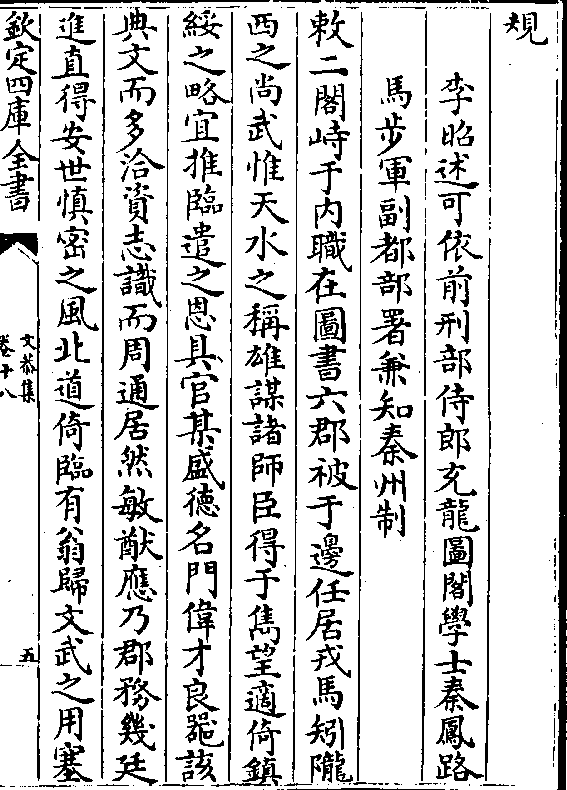 規
李昭述可依前刑部侍郎充龍圖閣學士秦鳳路
馬步軍副都部署兼知秦州制
敕二閣峙于内職在圖書六郡被于邊任居戎馬矧隴
西之尚武惟天水之稱雄謀諸師臣得于雋望適倚鎮
綏之略宜推臨遣之恩具官某盛德名門偉才良器該
典文而多洽資志識而周通居然敏猷應乃郡務幾廷
進直得安世慎密之風北道倚臨有翁歸文武之用塞
欽定四庫全書
文恭集
卷十八
五